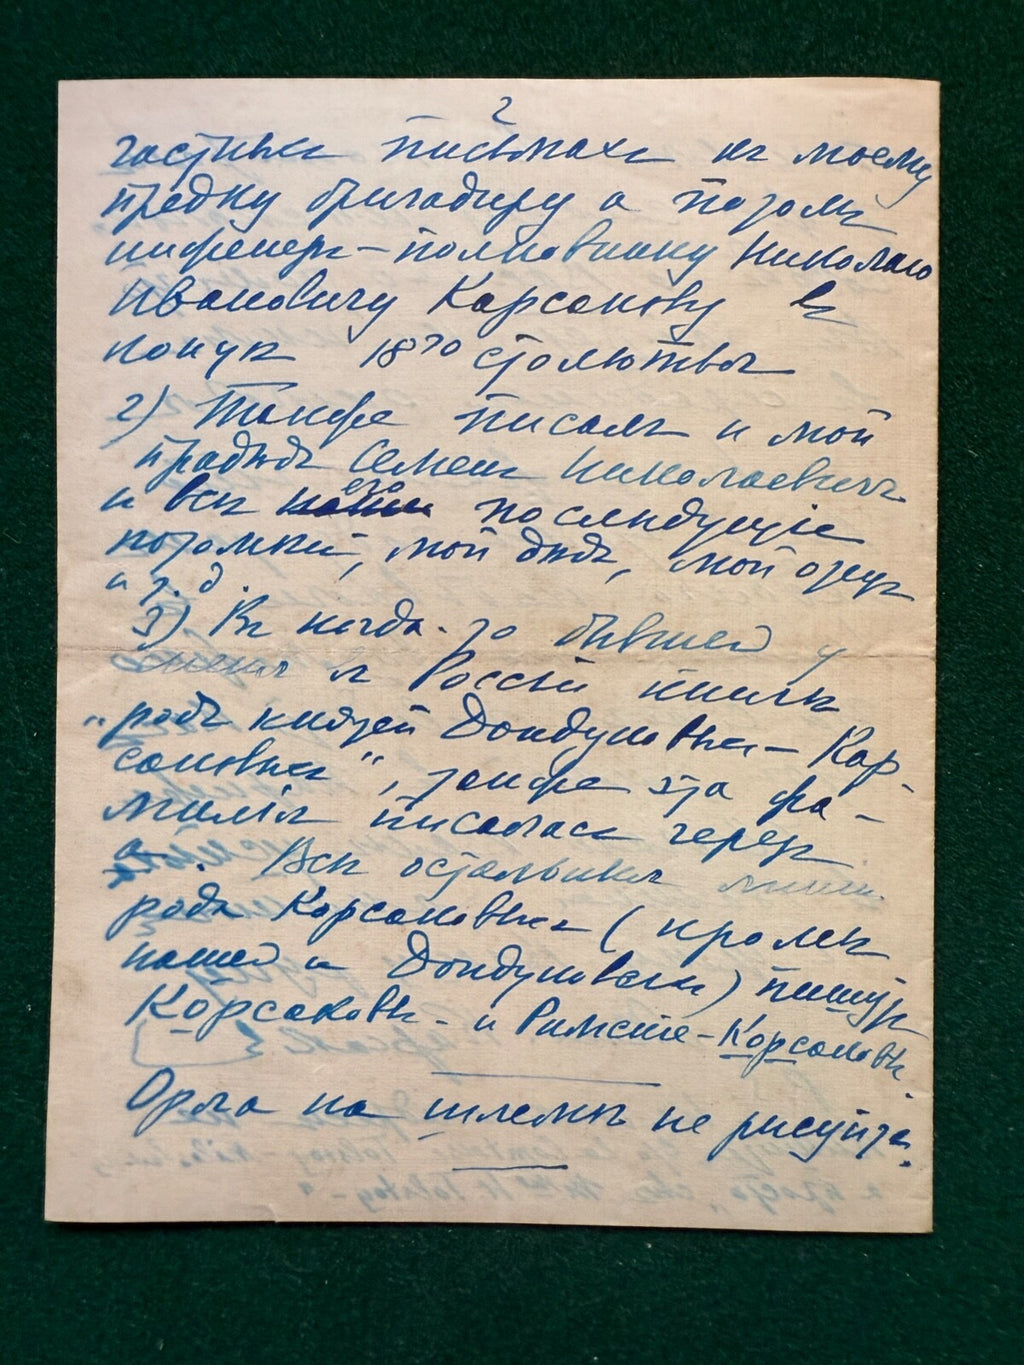 2
частныхъ письмахъ къ моему
предку бригадиру а потомъ
инженеръ-полковнику Николаю
Ивановичу Карсакову въ
концѣ 18го столѣтья
2) Также писалъ и мой
прадѣдъ Семенъ Николаевичъ
и всѣ его послѣдующіе
потомки, мой дѣдъ, мой отецъ
и т. д.
3) Въ когда-то бывшей у
меня въ Россіи книгѣ
"родъ князей Дондуковыхъ-Кар-
саковыхъ", также эта фа-
милія писалась черезъ
а. Всѣ остальныя линіи
рода Корсаковыхъ (кромѣ
нашей и Дондуковыхъ) пишутъ
Корсаковъ- и Римскіе-Корсаковы
Орла на шлемѣ не рисуйте.